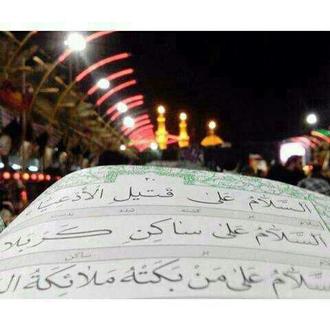 اَلسَّلامُ عَلىٰ قَتيلِ الْأَدْعِيا
اَلسَّلامُ عَلىٰ ساكِنِ كَرْبَلا
سَّلامُ عَلىٰ مَنْ بَكَتْهُ مَلائِكَةُ